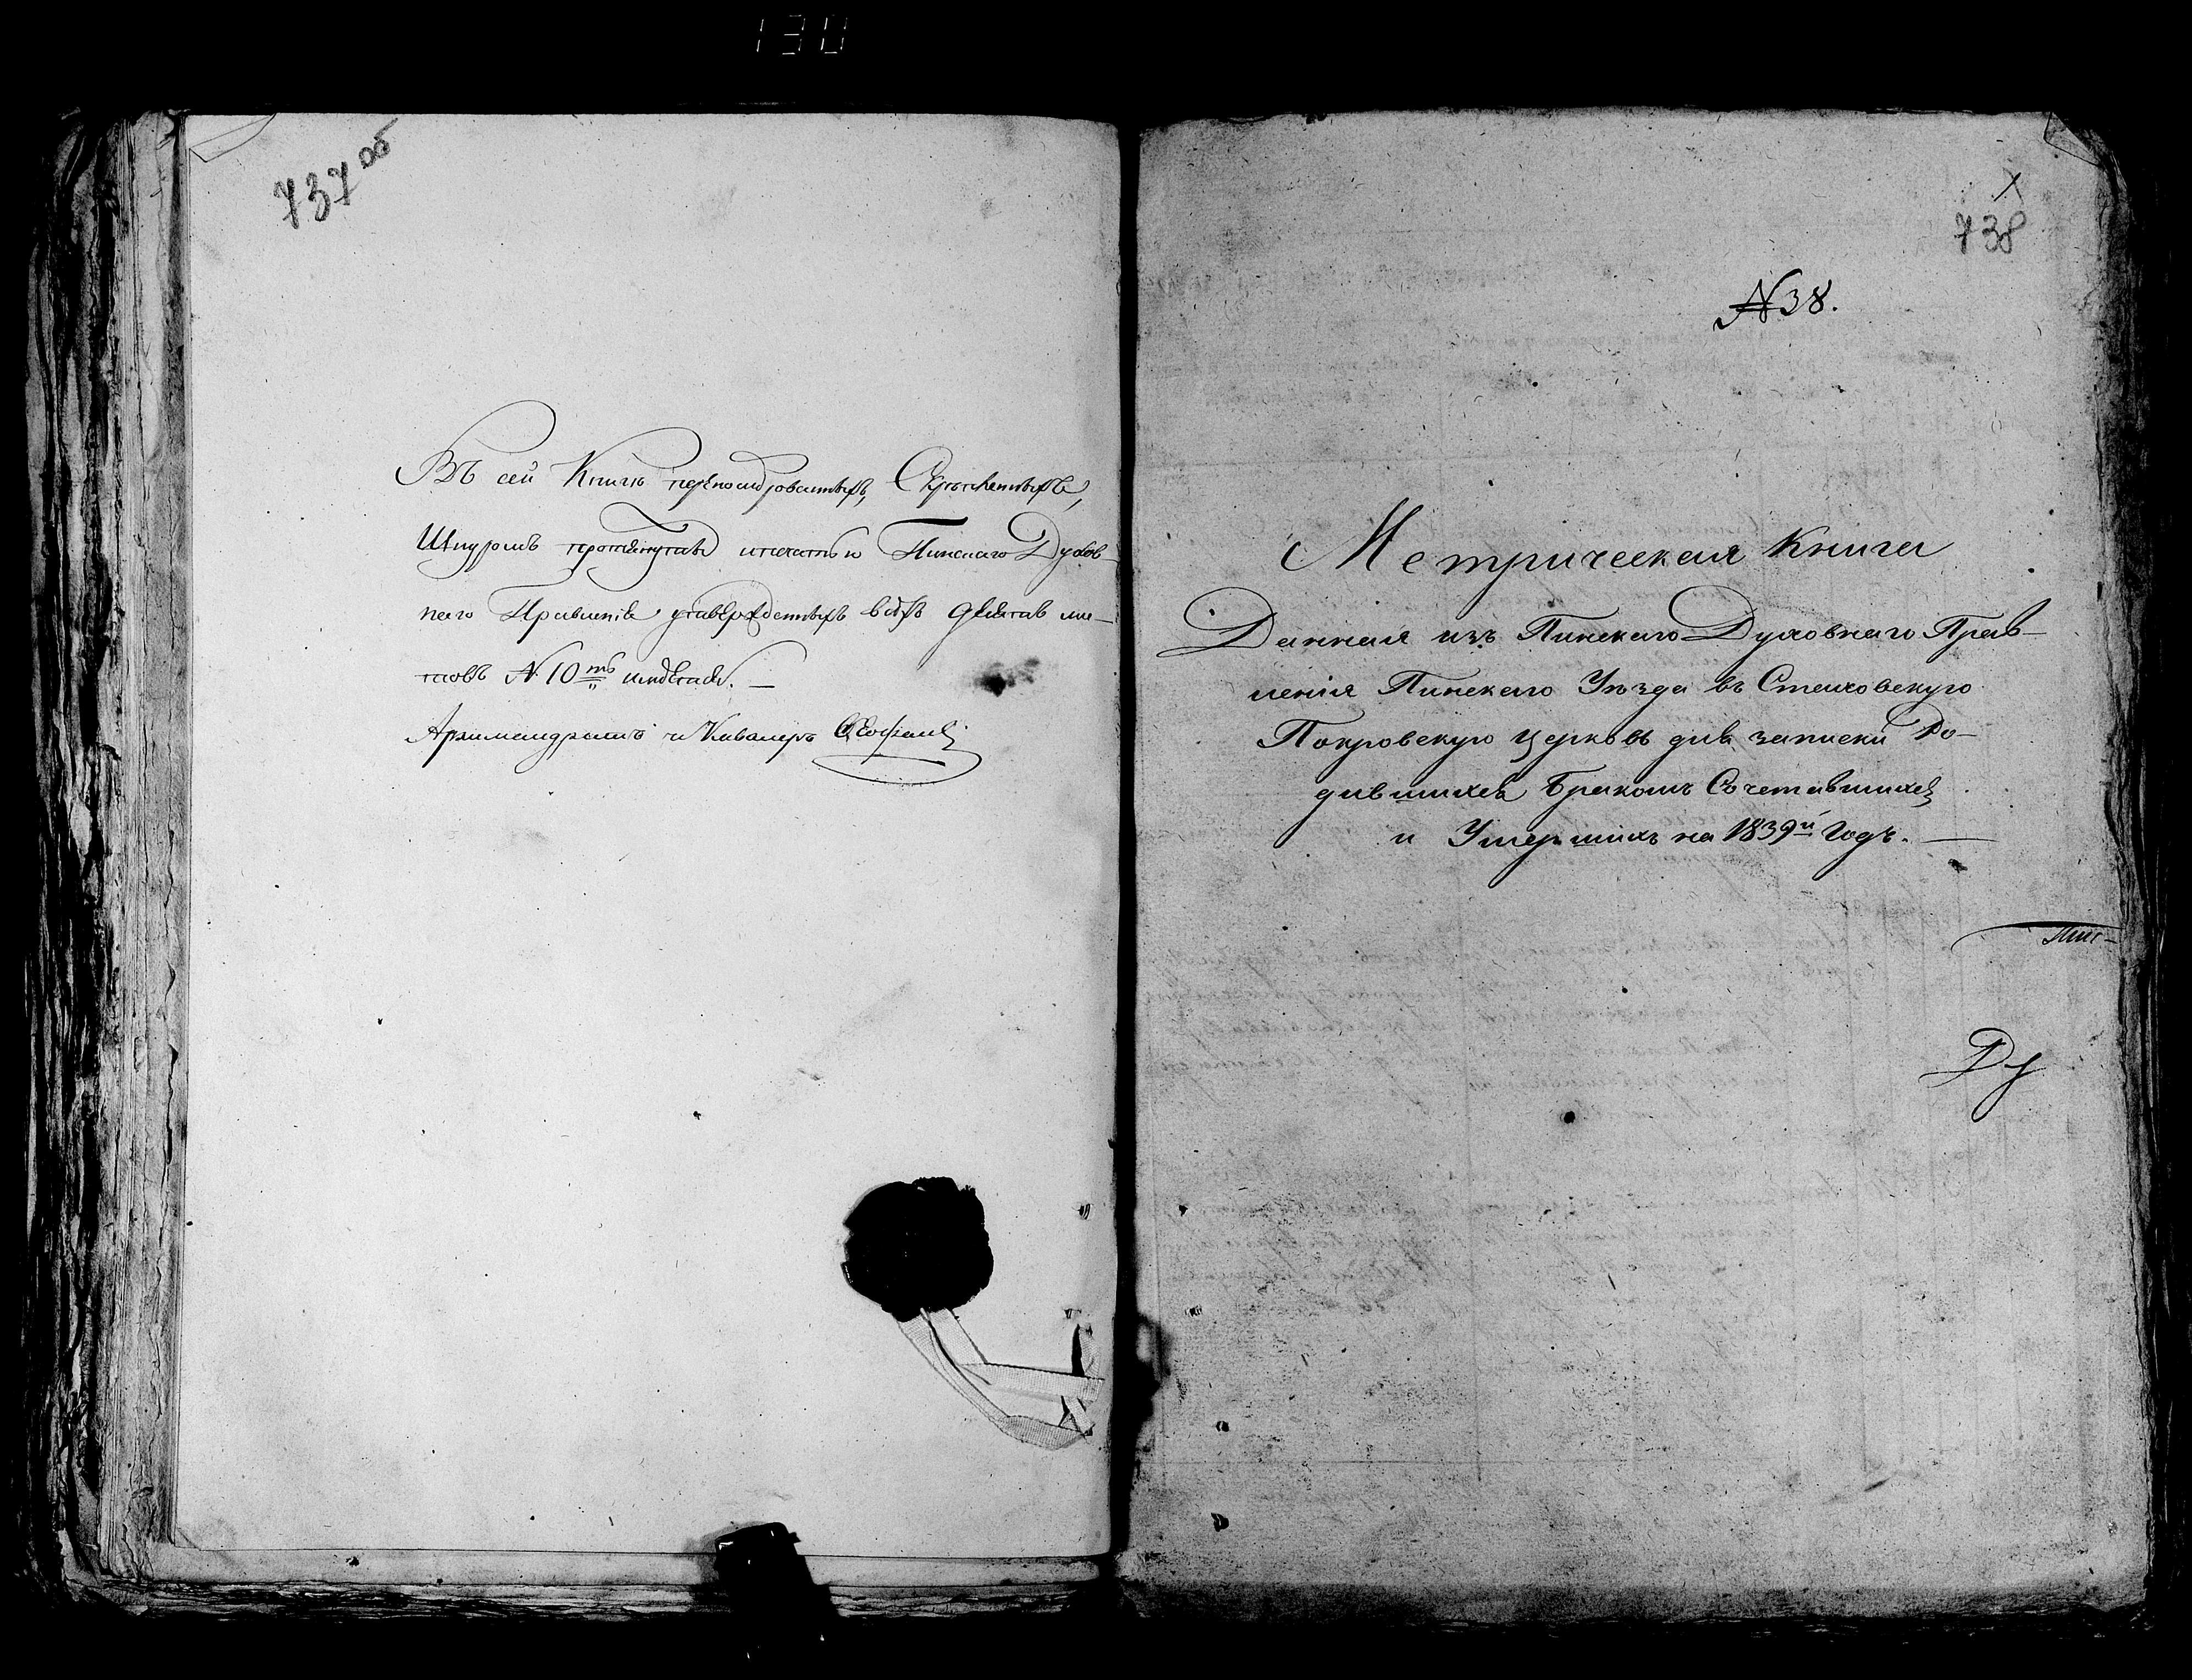 130
737 об
Въ сей Книгѣ перенумерованныхъ, Скрѣпленныхъ,
Шнуромъ протянутыхъ и печатью Пинскаго Духов-
наго Правленія утвержденныхъ всѣхъ десять ли-
стовъ N. 10ть листовъ. —
Архимандритъ и Кавалеръ
X
738
№ 38.
Метрическая Книга
Данная изъ Пинскаго Духовнаго Прав-
ленія Пинскаго Уѣзда въ Стаховскую
Покровскую церковь для записки Ро-
дившихся Бракомъ Сочетавшихся
и Умершихъ на 1839й Годъ. —
Пин-
Ду